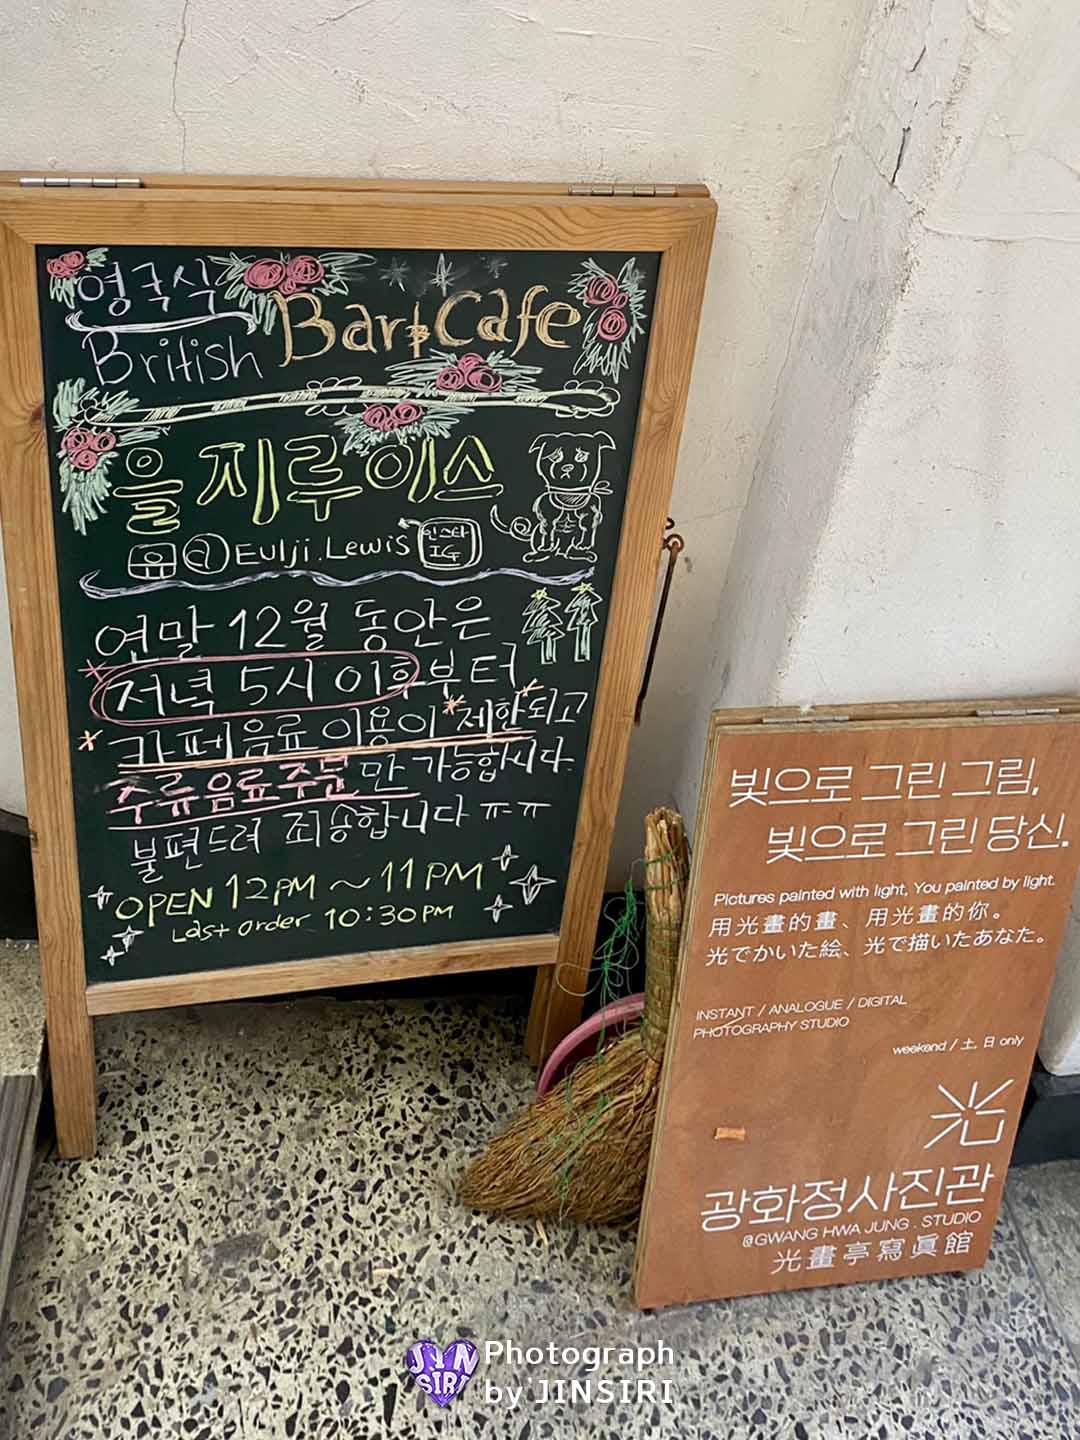 영국식
British Bar & Cafe
을지루이스
유 @ Eulji.Lewis 인스타 IG
연말 12월 동안은
저녁 5시 이후부터
* 카페음료 이용이 *제한*되고
주류음료주문만 가능합니다.
불편드려 죄송합니다 ㅠㅠ
OPEN 12PM ~ 11PM
Last order 10:30PM
빛으로 그린 그림,
빛으로 그린 당신.
Pictures painted with light, You painted by light.
用光畫的畫、用光畫的你。
光でかいた絵、光で描いたあなた。
INSTANT / ANALOGUE / DIGITAL
PHOTOGRAPHY STUDIO
weekend / 土, 日 only
光
광화정사진관
@GWANG HWA JUNG . STUDIO
光畫亭寫眞館
JIN SIRI
Photograph
by JINSIRI